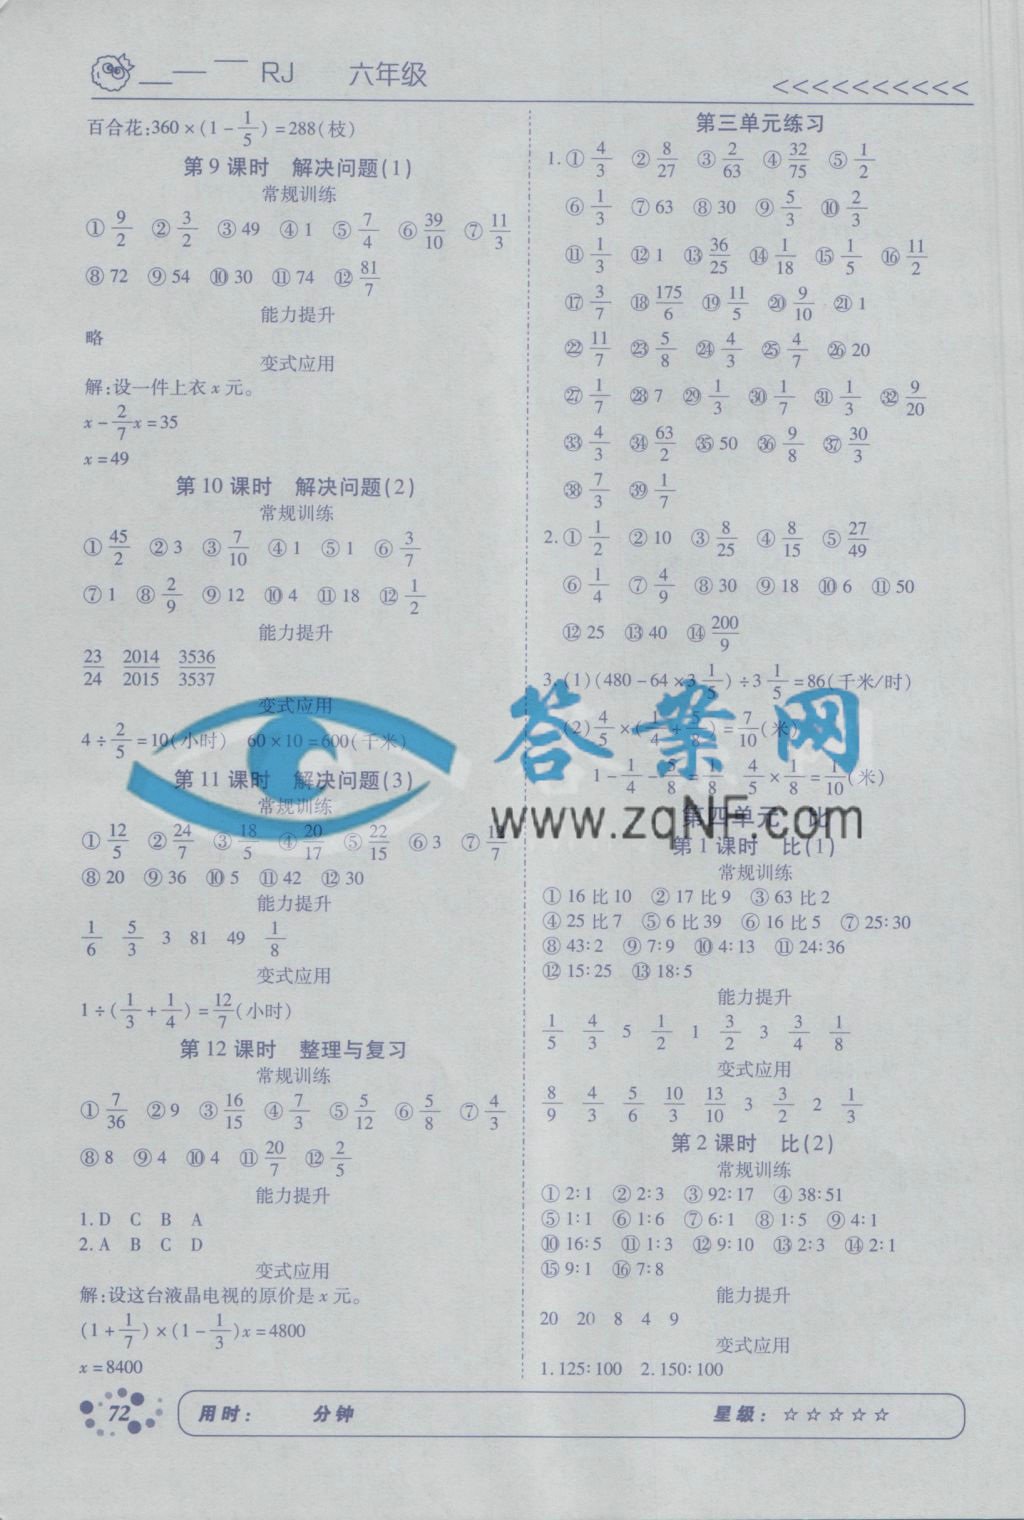 RJ 六年级
<<<<<<<<<<
百合花:360×(1-1/5)=288(枝)
第9课时 解决问题(1)
常规训练
①9/2 ②3/2 ③49 ④1 ⑤7/4 ⑥39/10 ⑦11/3
⑧72 ⑨54 ⑩30 ⑪74 ⑫81/7
能力提升
略
变式应用
解:设一件上衣x元。
x-2/7x=35
x=49
第10课时 解决问题(2)
常规训练
①45/2 ②3 ③7/10 ④1 ⑤1 ⑥3/7
⑦1 ⑧2/9 ⑨12 ⑩4 ⑪18 ⑫1/2
能力提升
23/24 2014/2015 3536/3537
变式应用
4÷2/5=10(小时) 60×10=600(千米)
第11课时 解决问题(3)
常规训练
①12/5 ②24/7 ③18/5 ④20/17 ⑤22/15 ⑥3 ⑦
⑧20 ⑨36 ⑩5 ⑪42 ⑫30
能力提升
1/6 5/3 3 81 49 1/8
变式应用
1÷(1/3+1/4)=12/7(小时)
第12课时 整理与复习
常规训练
①7/36 ②9 ③16/15 ④7/3 ⑤5/12 ⑥5/8 ⑦4/3
⑧8 ⑨4 ⑩4 ⑪20/7 ⑫2/5
能力提升
1.D C B A
2.A B C D
变式应用
解:设这台液晶电视的原价是x元。
(1+1/7)×(1-1/3)x=4800
x=8400
第三单元练习
1.①4/3 ②8/27 ③2/63 ④32/75 ⑤1/2
⑥1/3 ⑦63 ⑧30 ⑨5/3 ⑩2/3
⑪1/3 ⑫1 ⑬36/25 ⑭1/18 ⑮1/5 ⑯11/2
⑰3/7 ⑱175/6 ⑲11/5 ⑳9/10 ㉑1
㉒11/7 ㉓5/8 ㉔4/3 ㉕4/7 ㉖20
㉗1/7 ㉘7 ㉙1/3 ㉚1/7 ㉛1/3 ㉜9/20
㉝4/3 ㉞63/2 ㉟50 ㊱9/8 ㊲30/3
㊳7/3 ㊴1/7
2.①1/2 ②10 ③8/25 ④8/15 ⑤27/49
⑥1/4 ⑦4/9 ⑧30 ⑨18 ⑩6 ⑪50
⑫25 ⑬40 ⑭200/9
3.(1)(480-64×3 1/5)÷3 1/5=86(千米/时)
(2)4/5×(1/4+5/8)=7/10(米)
1-1/4-5/8=1/8 4/5×1/8=1/10(米)
第四单元 比
第1课时 比(1)
常规训练
①16比10 ②17比9 ③63比2
④25比7 ⑤6比39 ⑥16比5 ⑦25:30
⑧43:2 ⑨7:9 ⑩4:13 ⑪24:36
⑫15:25 ⑬18:5
能力提升
1/5 4/3 5 1/2 1 3/2 3 3/4 1/8
变式应用
8/9 4/3 5/6 10/3 13/10 3 3/2 2 1/3
第2课时 比(2)
常规训练
①2:1 ②2:3 ③92:17 ④38:51
⑤1:1 ⑥1:6 ⑦6:1 ⑧1:5 ⑨4:1
⑩16:5 ⑪1:3 ⑫9:10 ⑬2:3 ⑭2:1
⑮9:1 ⑯7:8
能力提升
20 20 8 4 9
变式应用
1.125:100 2.150:100
答案网
www.zqNF.com
72
用时: 分钟 星级:☆☆☆☆☆